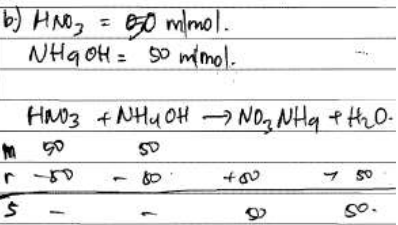 b.) HNO3 = 50 mmol.
NH4OH = 50 mmol.
HNO3 + NH4OH → NO3NH4 + H2O.
m 50 50
r -50 - 50 +50 + 50
s - - 50 50.